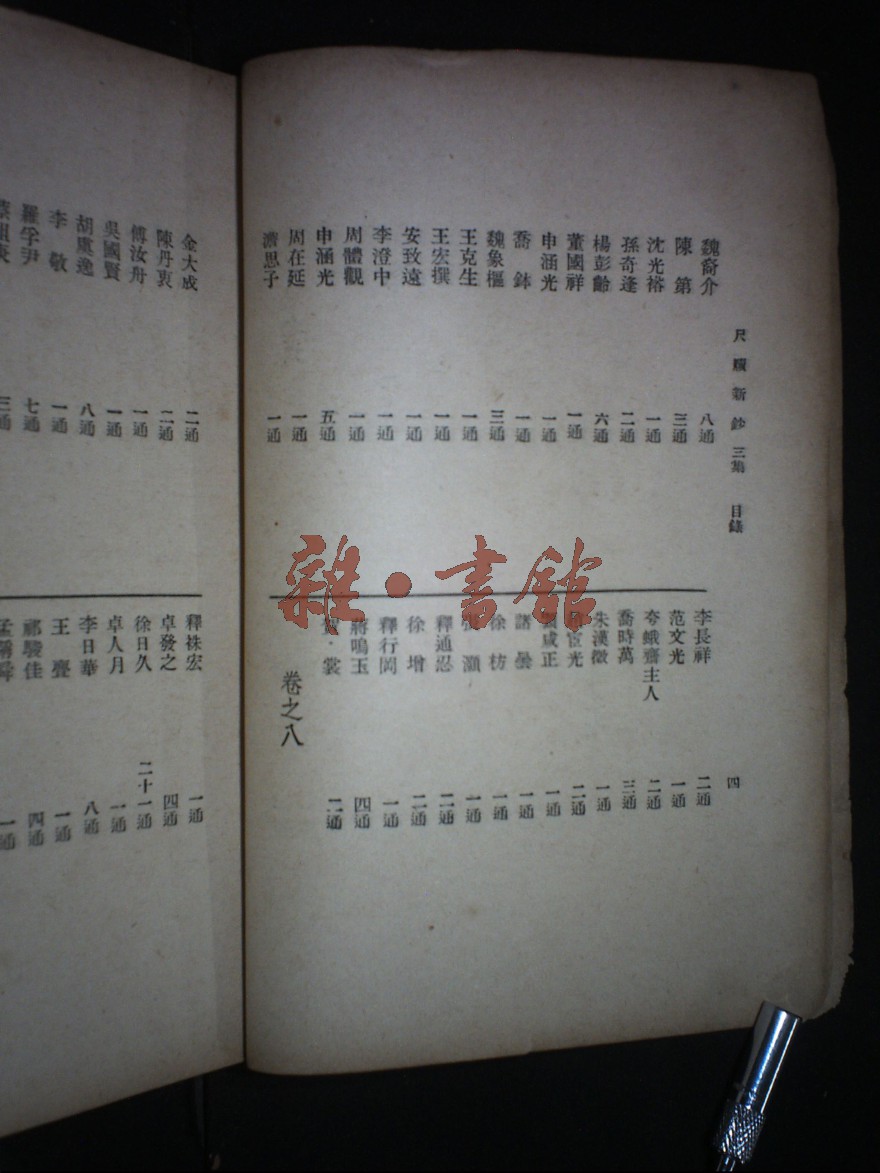 尺牘新鈔 三集 目錄
四
魏裔介 八通
陳第 三通
沈光裕 一通
孫奇逢 二通
楊彭齡 六通
董國祥 一通
申涵光 一通
喬鉢 一通
魏象樞 三通
王克生 一通
王宏撰 一通
安致遠 一通
李澄中 一通
周體觀 一通
申涵光 五通
周在延 一通
濟思子 一通
李長祥 二通
范文光 一通
夸蛾齋主人 二通
喬時萬 三通
朱漢徵 一通
宦光 二通
成正 一通
諸曇 一通
徐枋 一通
張灝 一通
釋通忍 二通
徐增 二通
釋行岡 一通
蔣鳴玉 四通
賀裳 二通
卷之八
金大成 二通
陳丹衷 二通
傅汝舟 一通
吳國賢 一通
胡虞逸 八通
李敬 一通
羅孚尹 七通
三通
釋袾宏 一通
卓發之 四通
徐日久 二十一通
卓人月 一通
李日華 八通
王 一通
祁駿佳 四通
孟稱舜 一通
雜·書館